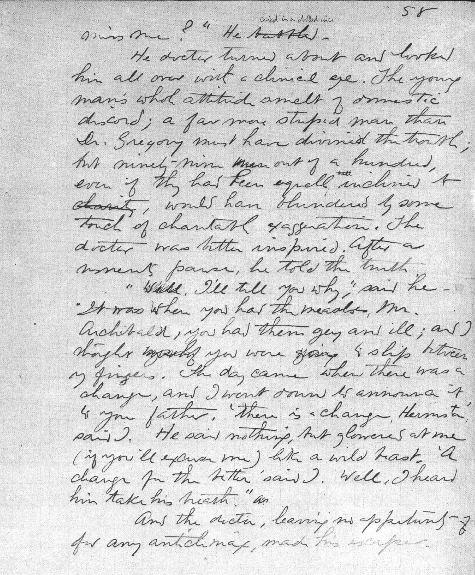 58
cried in a childish voice
miss me?" He babbled.
He doctor turned about and looked
him all over with a clinical eye. The young
man's whol attitude smelt of domestic
discord; a far more stupid man than
Dr. Gregory must have divined the truth;
but ninety-nine men out of a hundred,
even if they had been equally inclined to
charity, would have blundered by some
touch of charitable exaggeration. The
doctor was better inspired. After a
moment's pause, he told the truth.
"Well. I'll tell you why," said he –
"It was when you had the measles, Mr.
Archibald, you had them gey and ill; and I
thought myself you were going to slip between
my fingers. The day came when there was a
change, and I went down to announce it
to your father. 'There is a change, Hermiston'
said I. He said nothing, but glowered at me
(if you'll excuse me) like a wild beast. 'A
change for the better' said I. Well, I heard
him take his breath." as
And the doctor, leaving no opportunity of
for any anticlimax, made his escape.